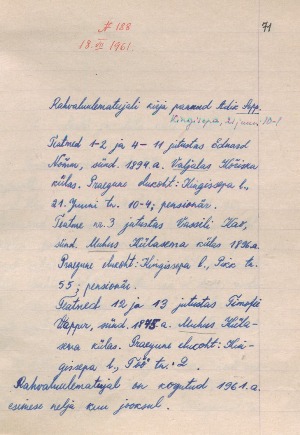 № 188
18. VI 1961.
71
Rahvaluulematerjali kirja pannud Adik Sepp.
Kingissepa, 21. juuni 10-1
Teatned 1-2 ja 4-11 jutustas Eduard
Nõmm, sünd. 1894.a. Valjalas Kõriska
külas. Praegune elukoht: Kingissepa l.,
21. Juuni tn. 10-4; pensionär.
Teatne nr. 3 jutustas Vassili Kao,
sünd. Muhus Külasema külas 1896.a.
Praegune elukoht: Kingissepa l., Pikk tn.
55; pensionär.
Teatned 12 ja 13 jutustas Timofei
sünd. 1878.a. Muhus Küla-
sema külas. Praegune elukoht: Kin-
gissepa l., Töö tn. 2.
Rahvaluulematerjal on kogutud 1961.a.
esimese nelja kuu jooksul.